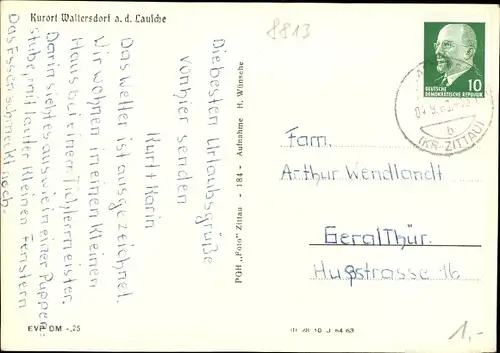 Kurort Waltersdorf a. d. Lausche
8813
Die besten Urlaubsgrüße
von hier senden
Kurt + Karin
Das Wetter ist ausgezeichnet.
Wir wohnen in einen kleinen
Haus bei einer Tichlermeister.
Darin sieht es aus wie in einer Puppen-
stube, mit lauter kleinen Fenstern
Das Essen schmeckt noch.
PGH „Foto" Zittau - 184 - Aufnahme H. Wünsche
EVP DM -,25
DEUTSCHE
DEMOKRATISCHE REPUBLIK
10
b
(KR. ZITTAU)
Fam.
Arthur Wendlandt
Gera/Thür.
Hußstrasse 16
J 64 63
1,-